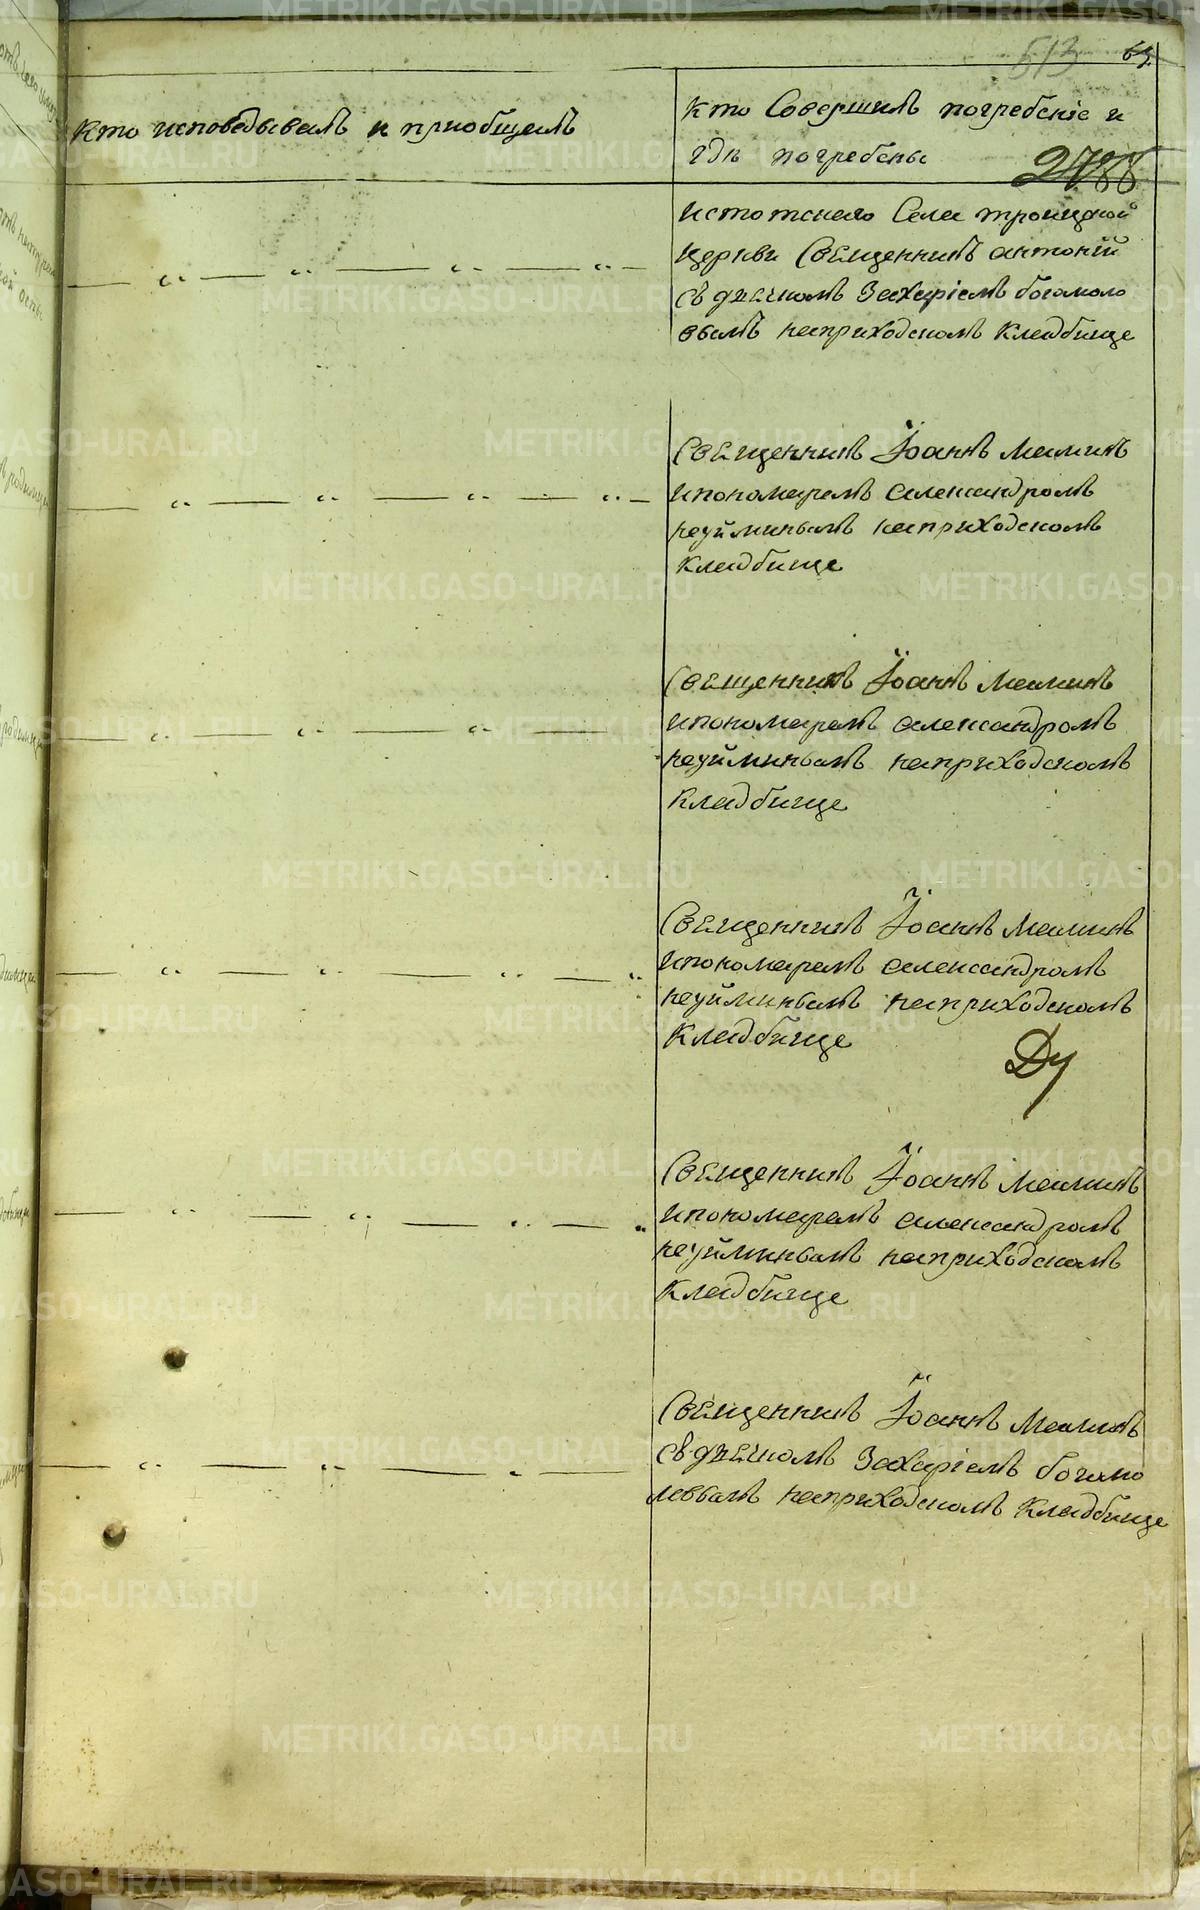 513 65.
Кто исповѣдывалъ и приобщалъ
Кто Совершилъ погребенiе и
гдѣ погребены
2788
Истотскаго Села троицкой
церкви Священникъ антонiй
съ дьячкомъ Захарiемъ богомоло
вымъ наприходскомъ Кладбище
Священникъ Iоаннъ Маминъ
ипономаремъ александромъ
неуйминымъ наприходскомъ
Кладбище
Священникъ Iоаннъ Маминъ
ипономаремъ александромъ
неуйминымъ наприходскомъ
Кладбище
Священникъ Iоаннъ Маминъ
ипономаремъ александромъ
неуйминымъ наприходскомъ
Кладбище
Ду
Священникъ Iоаннъ Маминъ
ипономаремъ александромъ
неуйминымъ наприходскомъ
Кладбище
Священникъ Iоаннъ Маминъ
съ дьячкомъ Захарiемъ богомо
ловымъ наприходскомъ Кладбище
METRIKI.GASO-URAL.RU